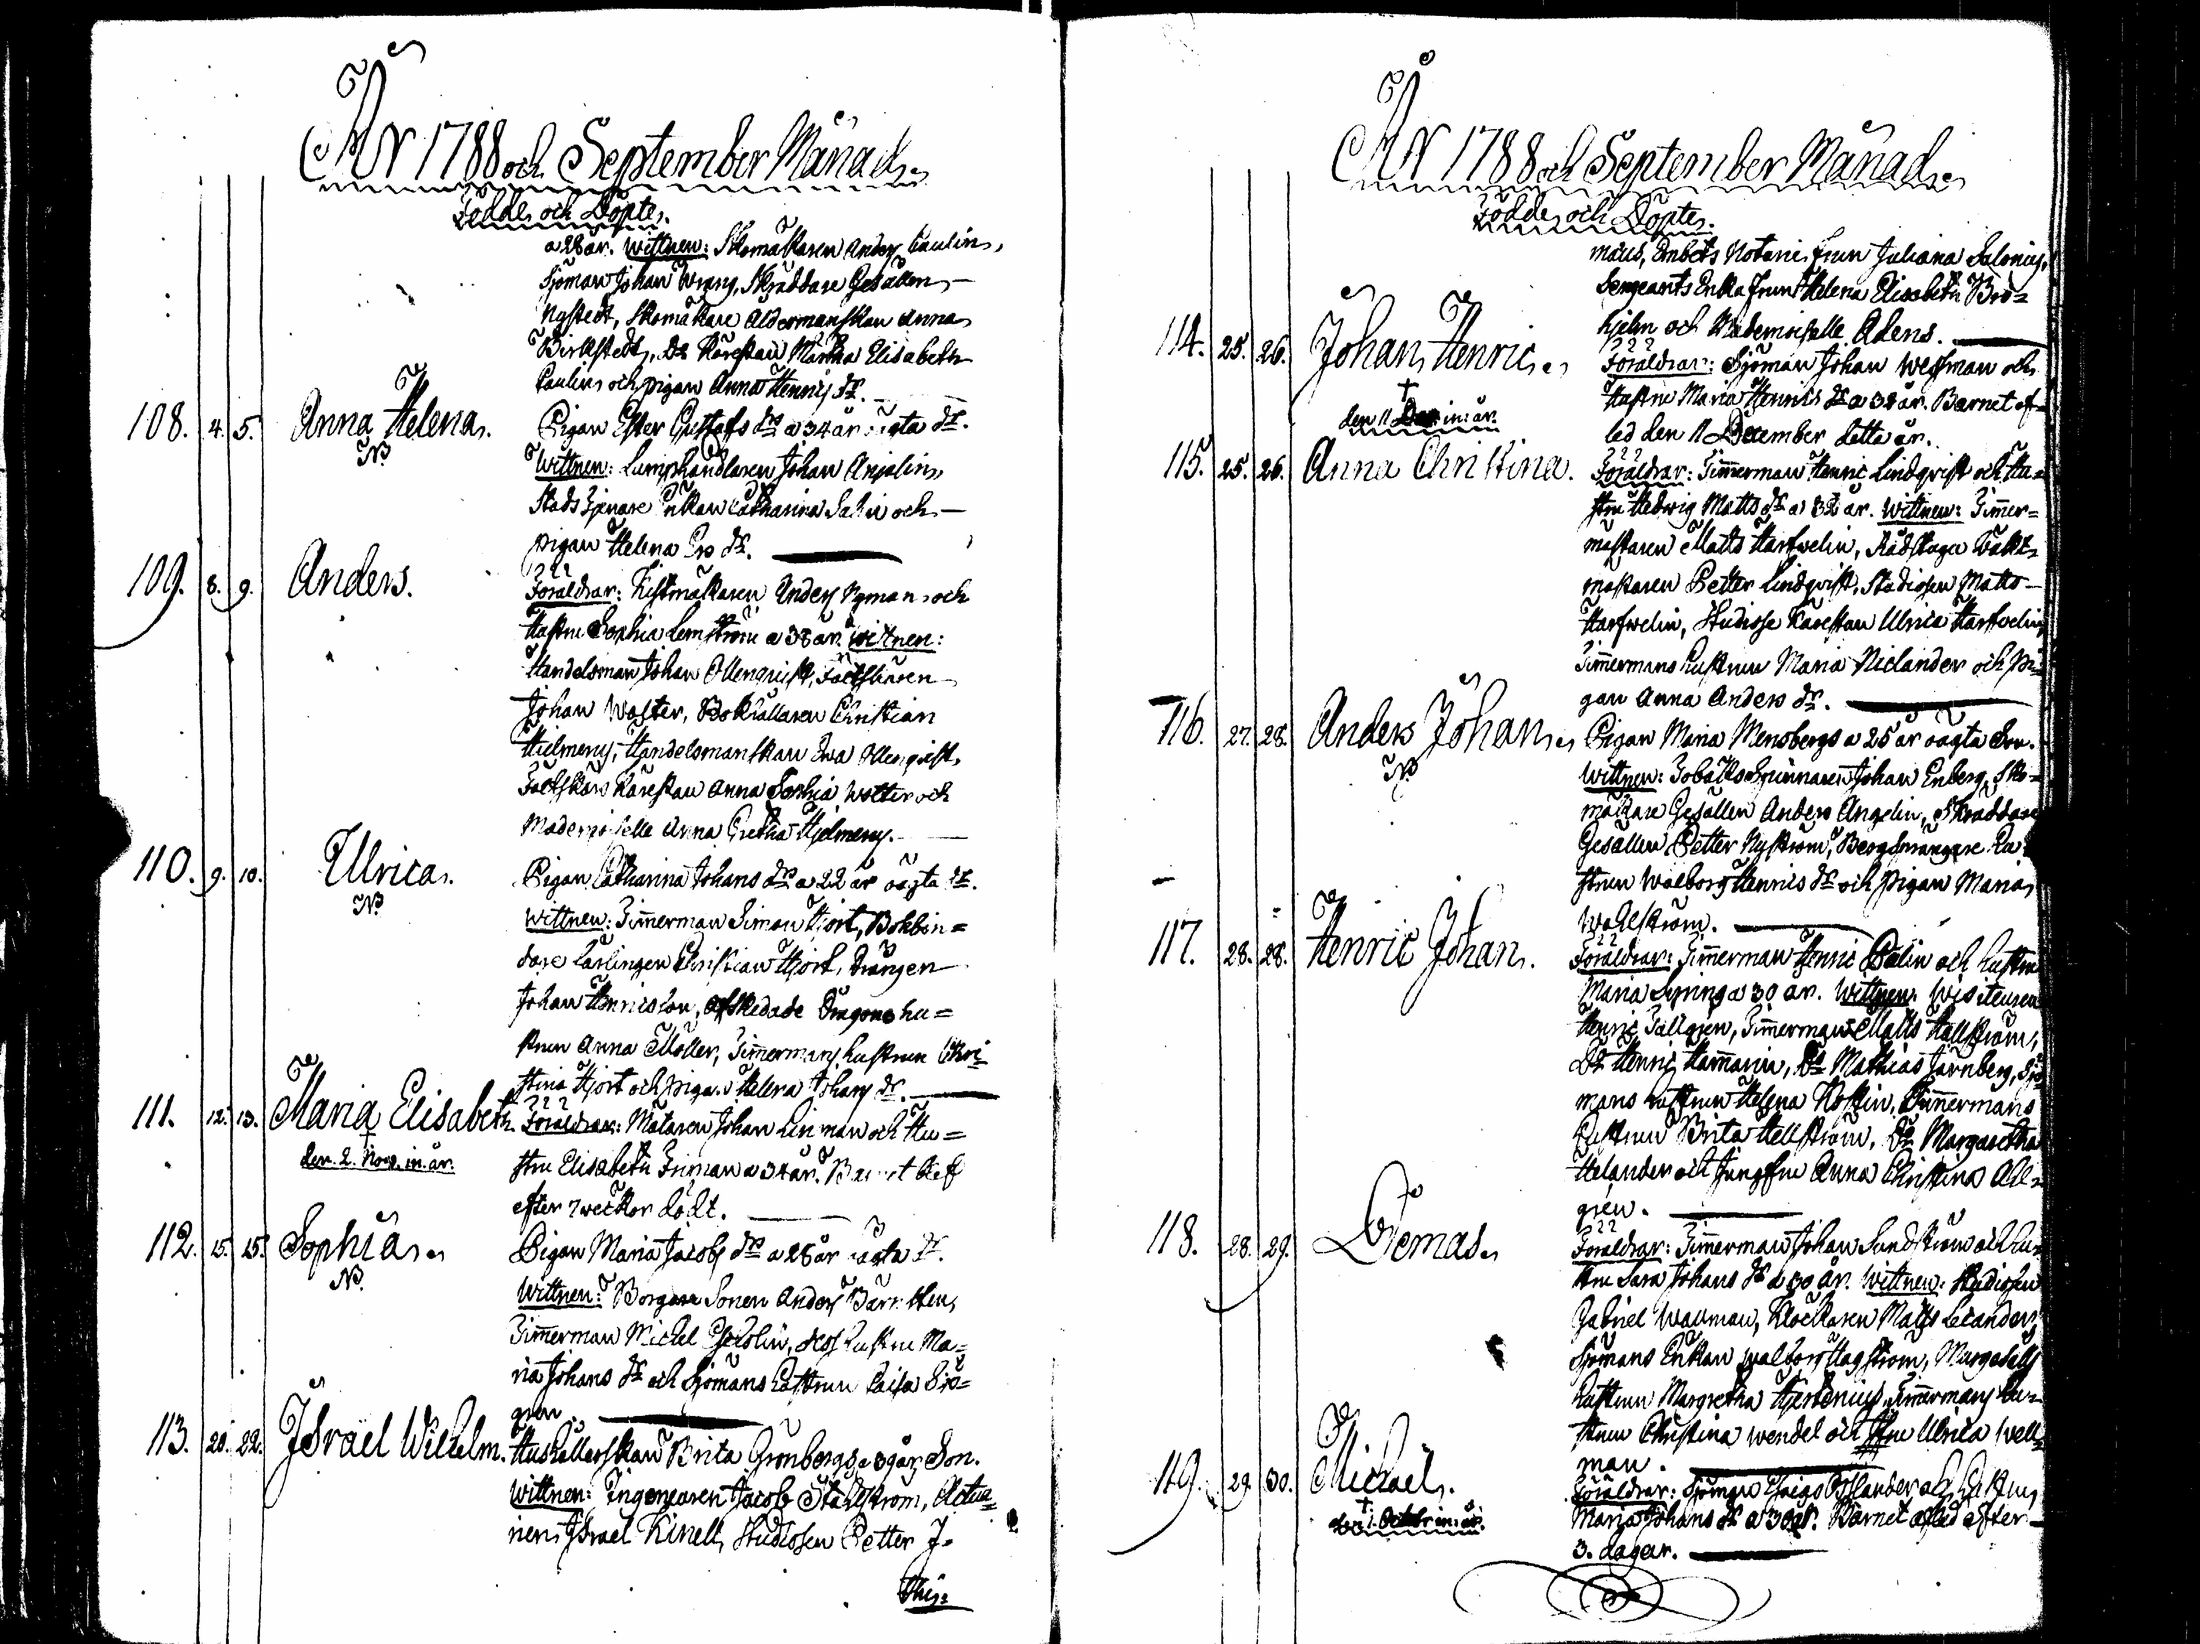 Åhr 1788 och September Månad.
Födde och Döpte.
a 28 år. Wittnen: Skomakaren Anders Paulin,
Sjöman Johan Wrang, Skräddare Gesällen
Nystedt, Skomakare Åldermanskan Anna
Birkstedt, Do Käreskan Martha Elisabeth
Paulin och pigan Anna Henrics dr.
108. 4. 5. Anna Helena. Pigan Ester Gustafs dr a 34 år oägta dr.
NB Wittnen: Lumphandlaren Johan Anjelin,
Stads Tjenare Enkan Catharina Salin och
pigan Helena Ers dr.
109. 8. 9. Anders. Föräldrar: Kistmakaren Anders Nyman och
Hustru Sophia Lemström a 38 år. Wittnen:
Handelsman Johan Ollenquist, Fältskären
Johan Walter, Bokhållaren Christian
Hielmerus, Handelsmanskan Eva Ollenqvist,
Fältskärs Käreskan Anna Sophia Wolter och
Mademoiselle Anna Gretha Hjelmerus.
110. 9. 10. Ulrica. Pigan Catharina Johans dr a 22 år oägta dr.
NB Wittnen: Timmerman Simon Hjort, Bokbin=
dare Lärlingen Christian Hjort, Drängen
Johan Henricsson, afskedade Dragons hu=
strun Anna Möller, Timmermans hustrun Chri=
stina Hjort och pigan Helena Johans dr.
111. 12. 13. Maria Elisabeth. Föräldrar: Mätaren Johan Linman och Hu=
den 2. Nov. in. år. stru Elisabeth Friman a 34 år. Barnet blef
efter 7 weckor dödt.
112. 15. 15. Sophia. Pigan Maria Jacobs dr a 28 år oägta dr.
NB Wittnen: Borgare Sonen Anders
Timmerman Michel hustru Ma=
ria Johans dr och Sjömans hustrun Caisa Siö=
gren.
113. 20. 22. Israel Wilhelm. Hushållerskan Brita Grönbergs a 39 år, Son.
Wittnen: Ingenjeuren Jacob Stålström, Actua=
rien Israel Kinell, Studiosen Petter J.
Åhr 1788 och September Månad.
Födde och Döpte.
Embets Notarie frun Juliana Salonius,
Sergeants Enka frun Helena Elisabeth Brö=
hjelm och Mademoiselle Adens.
114. 25. 26. Johan Henric. Föräldrar: Sjöman Johan Westman och
Hustru Maria Henrics dr a 38 år. Barnet af=
den 11 Dec. in. år. led den 11 December detta år.
115. 25. 26. Anna Christina. Föräldrar: Timmerman Henric Lindqvist och Hu=
stru Hedwig Matts dr a 32 år. Wittnen: Timmer=
mästaren Matts Harfwelin, Rådstugu Wakt=
mästaren Petter Lindqvist, Studiosen Matts
Harfwelin, Studiose Käreskan Ulrica Harfwelin,
Timmermans hustrun Maria Niclander och Pi=
gan Anna Anders dr.
116. 27. 28. Anders Johan. Pigan Maria Mensbergs a 25 år oägta Son.
NB Wittnen: Tobaks Spinnaren Johan Enberg, Sko=
makare Gesällen Anders Angelin, Skräddare
Gesällen Petter Nyström, hu=
strun Walborg Henrics dr och pigan Maria
Wahlström.
117. 28. 28. Henric Johan. Föräldrar: Timmerman Henric Palin och hustru
Maria Spring a 30 år. Wittnen: Wisiteuren
Henric Tallgren, Timmerman Matts Hallström,
Do Henric Hammarin, Do Mathias Jernberg, Siö=
mans hustrun Helena Noslin, Timmermans
hustrun Brita Hellström, Do Margaretha
Helander och Jungfru Anna Christina Ahl=
gren.
118. 28. 29. Demas. Föräldrar: Timmerman Johan Sundström och hu=
stru Sara Johans dr a 30 år. Wittnen: Studiosen
Gabriel Wallman, Klockaren Matts Leander,
Sjömans Enkan Walborg Hagström, Margesälls
hustrun Margretha Hjerbenius, Timmermans hu=
strun Christina Wendel och Ulrica Well=
man.
119. 29. 30. Michael. Föräldrar: Sjöman Esaias och Hustru
Maria Johans dr a 30 år. Barnet afled efter
3. dagar.